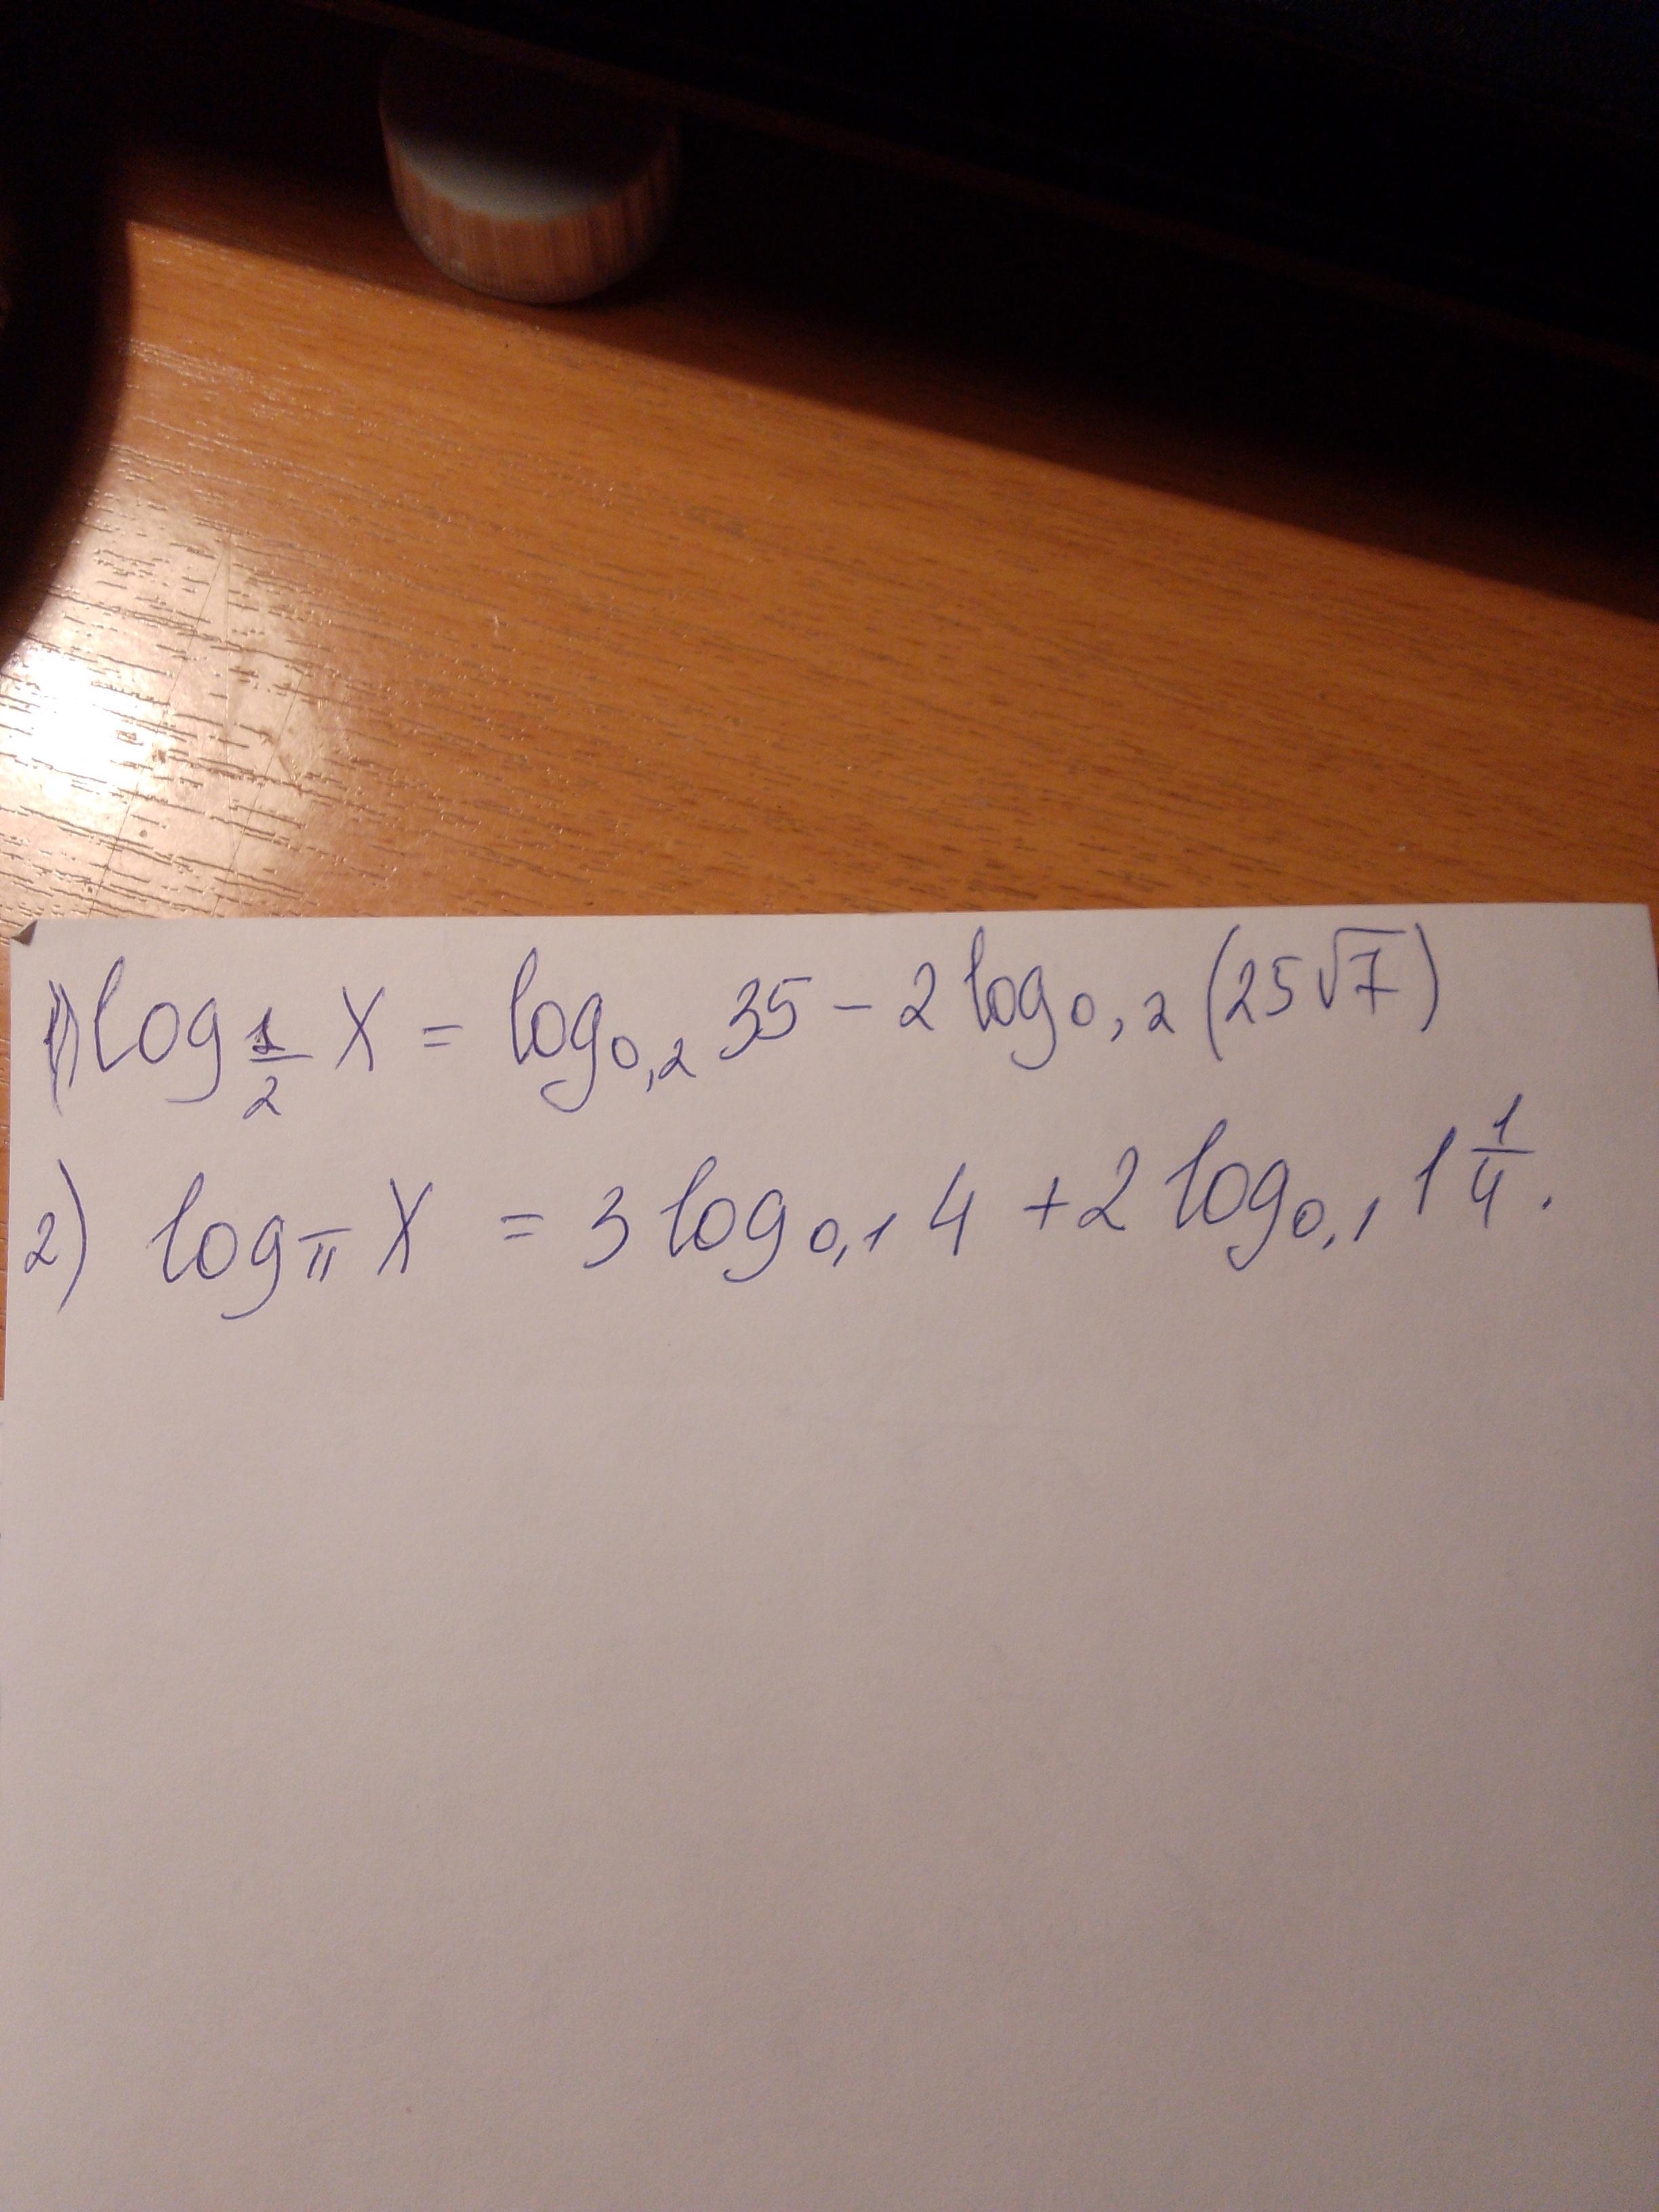 1) log_{1/2} X = log_{0,2} 35 - 2 log_{0,2} (25√7)
2) log_π X = 3 log_{0,1} 4 + 2 log_{0,1} 1 1/4.